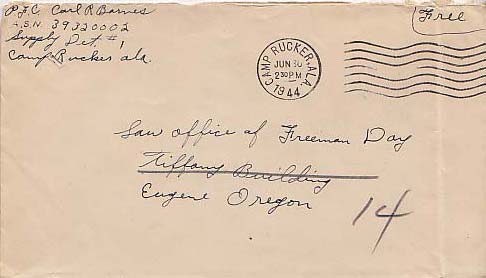 P.F.C. Carl R Barnes
A.S.N 39320002
Supply Det. #1
Camp Rucker ala.
Free
CAMP RUCKER, ALA.
JUN 30
230 PM
1944
Law office of Freeman Day
Tiffany Building
Eugene Oregon
14